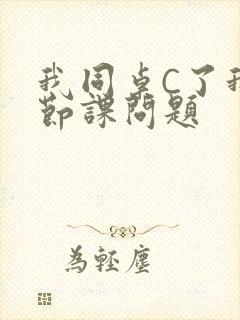 我同桌C了我
節課問題
為輕塵